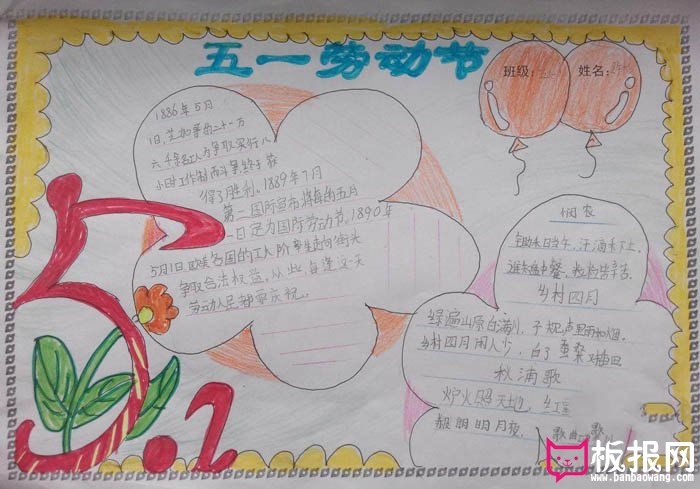 五一劳动节
班级:
姓名:
1886年5月
1日,芝加哥的二十一万
六千多名工人为争取实行八
小时工作制而斗争,终于获
得了胜利。1889年7月
第一国际宣布将每的五月
一日定为国际劳动节。1890年
5月1日,欧美各国的工人阶 率先走向街头
争取合法权益,从此每逢这一天
劳动人民都要庆祝。
悯农
日当午,汗滴禾下土。
谁 盘中餐,粒粒皆辛苦。
乡村四月
绿遍山原白满川,子规声里雨如烟。
乡村四月闲人少,才了蚕桑又插田
秋浦歌
炉火照天地,红星
赧明明月夜,
歌曲 歌
5.1
板报网
www.banbaowang.com